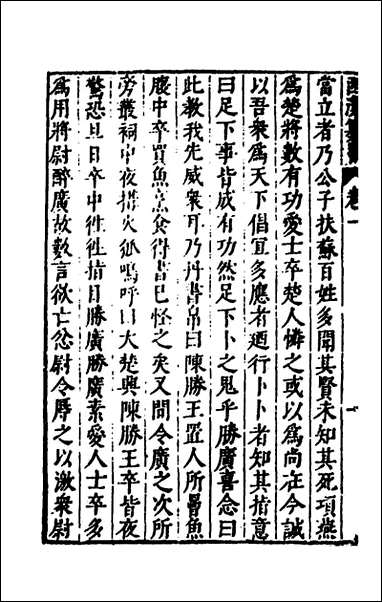 卷一
當立者乃公子扶蘇百姓多聞其賢未知其死項燕
爲楚將數有功愛士卒楚人憐之或以爲尚在今誠
以吾衆爲天下倡宜多應者迺行卜卜者知其指意
曰足下事皆成有功然足下卜之鬼乎勝廣喜念曰
此教我先威衆耳乃丹書帛曰陳勝王置人所罾魚
腹中卒買魚烹食得書已怪之矣又間令廣之次所
旁叢祠中夜搆火狐鳴呼曰大楚興陳勝王卒皆夜
驚恐旦日卒中徃徃指目勝廣勝廣素愛人士卒多
爲用將尉醉廣故數言欲亡忿尉令辱之以激衆尉